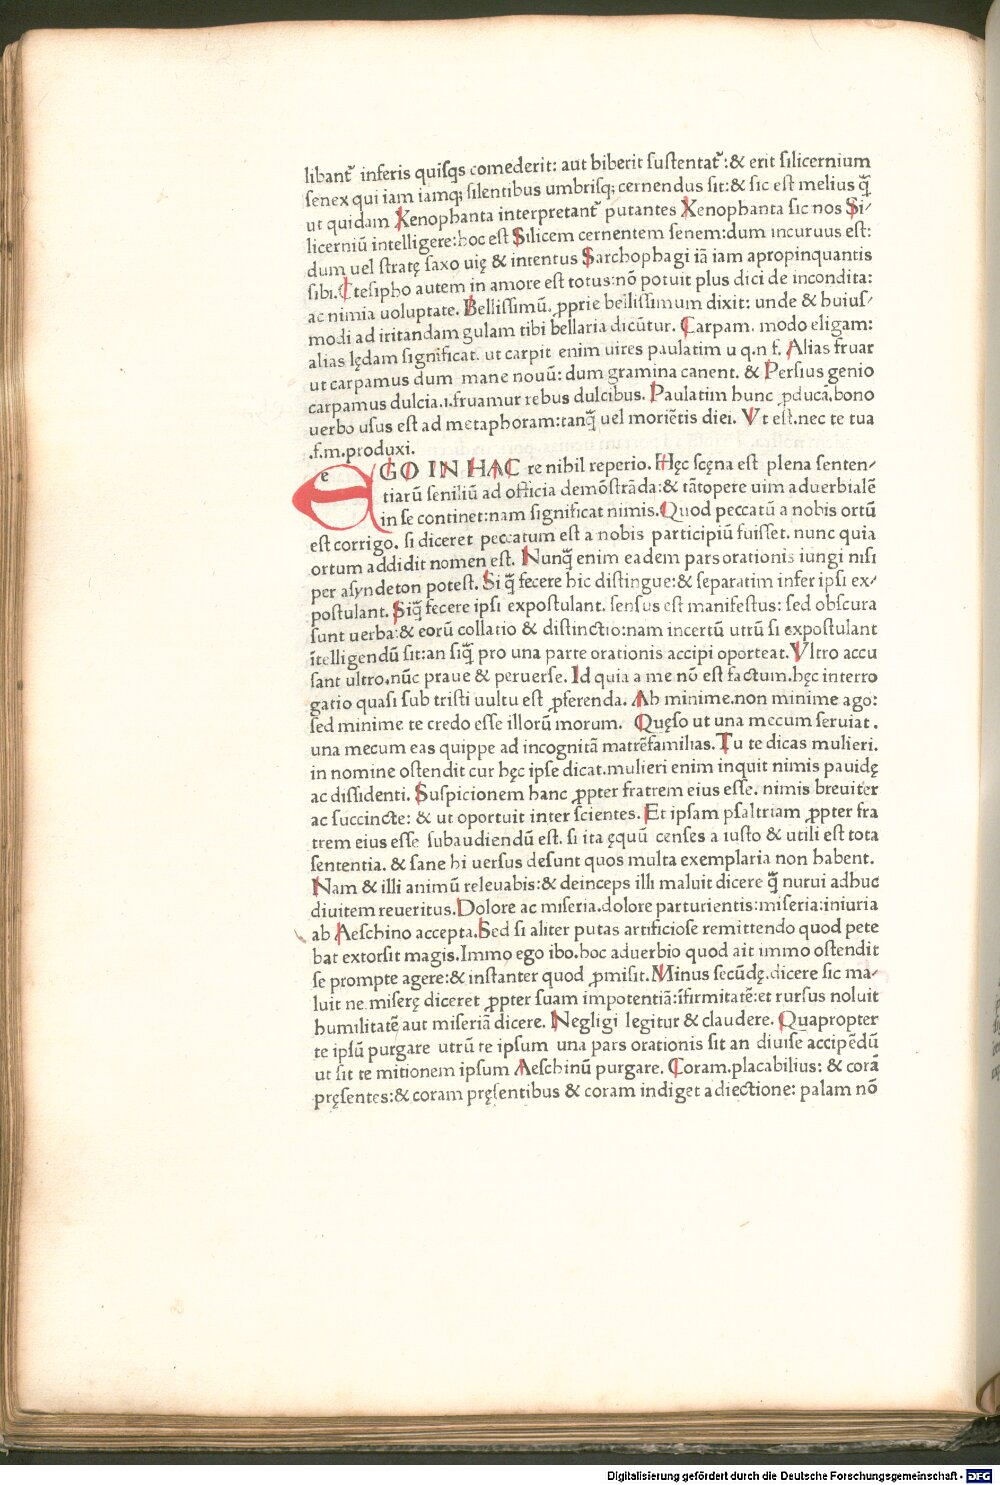 libant᷒ inferis quiſqs comederit: aut biberit ſuſtentat᷒:& erit ſilicernium
ſenex qui iam iamq; ſilentibus umbriſq; cernendus ſit:& ſic eſt melius q̄
ut quidam Xenophanta interpretant᷒ putantes Xenophanta ſic nos Si⸗
licerniū intelligere:hoc eſt Silicem cernentem ſenem:dum incuruus eſt:
dum uel ſtratę ſaxo uię & intentus Sarchophagi iā iam apropinquantis
ſibi.Cteſipho autem in amore eſt totus:nō potuit plus dici de incondita:
ac nimia uoluptate. Belliſſimū. ꝓprie belliſſimum dixit: unde & huiuſ⸗
modi ad iritandam gulam tibi bellaria dicūtur. Carpam. modo eligam:
alias lędam ſignificat. ut carpit enim uires paulatim u q.n f. Alias fruar
ut carpamus dum mane nouū: dum gramina canent. & Perſius genio
carpamus dulcia.ı.fruamur rebus dulcibus. Paulatim hunc ꝓducā.bono
uerbo uſus eſt ad metaphoram:tanq̄ uel moriētis diei. Vt eſt.nec te tua
.f.m.produxi.
eGO IN HAC re nihil reperio. Hęc ſcęna eſt plena ſenten⸗
tiarū ſeniliū ad officia demōſtrāda:& tātopere uim aduerbialē
in ſe continet:nam ſignificat nimis.Quod peccatū a nobis ortū
eſt corrigo. ſi diceret peccatum eſt a nobis participiū fuiſſet. nunc quia
ortum addidit nomen eſt. Nunq̄ enim eadem pars orationis iungi niſi
per aſyndeton poteſt. Si q̄ fecere hic diſtingue:& ſeparatim infer ipſi ex⸗
poſtulant. Siq̄ fecere ipſi expoſtulant. ſenſus eſt manifeſtus: ſed obſcura
ſunt uerba:& eorū collatio & diſtinctio:nam incertū utrū ſi expoſtulant
ītelligendū ſit:an ſiq̄ pro una parte orationis accipi oporteat.Vltro accu
ſant ultro.nūc praue & peruerſe. Id quia a me nō eſt factum.hęc interro
gatio quaſi ſub triſti uultu eſt ꝓferenda. Ab minime.non minime ago:
ſed minime te credo eſſe illorū morum. Quęſo ut una mecum ſeruiat.
una mecum eas quippe ad incognitā matrēfamilias.Tu te dicas mulieri.
in nomine oſtendit cur hęc ipſe dicat.mulieri enim inquit nimis pauidę
ac diſſidenti. Suſpicionem hanc ꝓpter fratrem eius eſſe. nimis breuiter
ac ſuccincte: & ut oportuit inter ſcientes. Et ipſam pſaltriam ꝓpter fra
trem eius eſſe ſubaudiendū eſt. ſi ita ęquū cenſes a iuſto & utili eſt tota
ſententia. & ſane hi uerſus deſunt quos multa exemplaria non habent.
Nam & illi animū releuabis:& deinceps illi maluit dicere q̄ nurui adhuc
diuitem reueritus.Dolore ac miſeria.dolore parturientis:miſeria:iniuria
ab Aeſchino accepta.Sed ſi aliter putas artificioſe remittendo quod pete
bat extorſit magis.Immo ego ibo.hoc aduerbio quod ait immo oſtendit
ſe prompte agere:& inſtanter quod ꝓmiſit.Minus ſecūdę.dicere ſic ma⸗
luit ne miſerę diceret ꝓpter ſuam impotentiā:īfirmitatē:et rurſus noluit
humilitatē aut miſeriā dicere. Negligi legitur & claudere. Quapropter
te ipſū purgare utrū te ipſum una pars orationis ſit an diuiſe accipēdū
ut ſit te mitionem ipſum Aeſchinū purgare. Coram.placabilius: & corā
pręſentes:& coram pręſentibus & coram indiget adiectione: palam nō
Digitalisierung gefördert durch die Deutsche Forschungsgemeinschaft - DFG